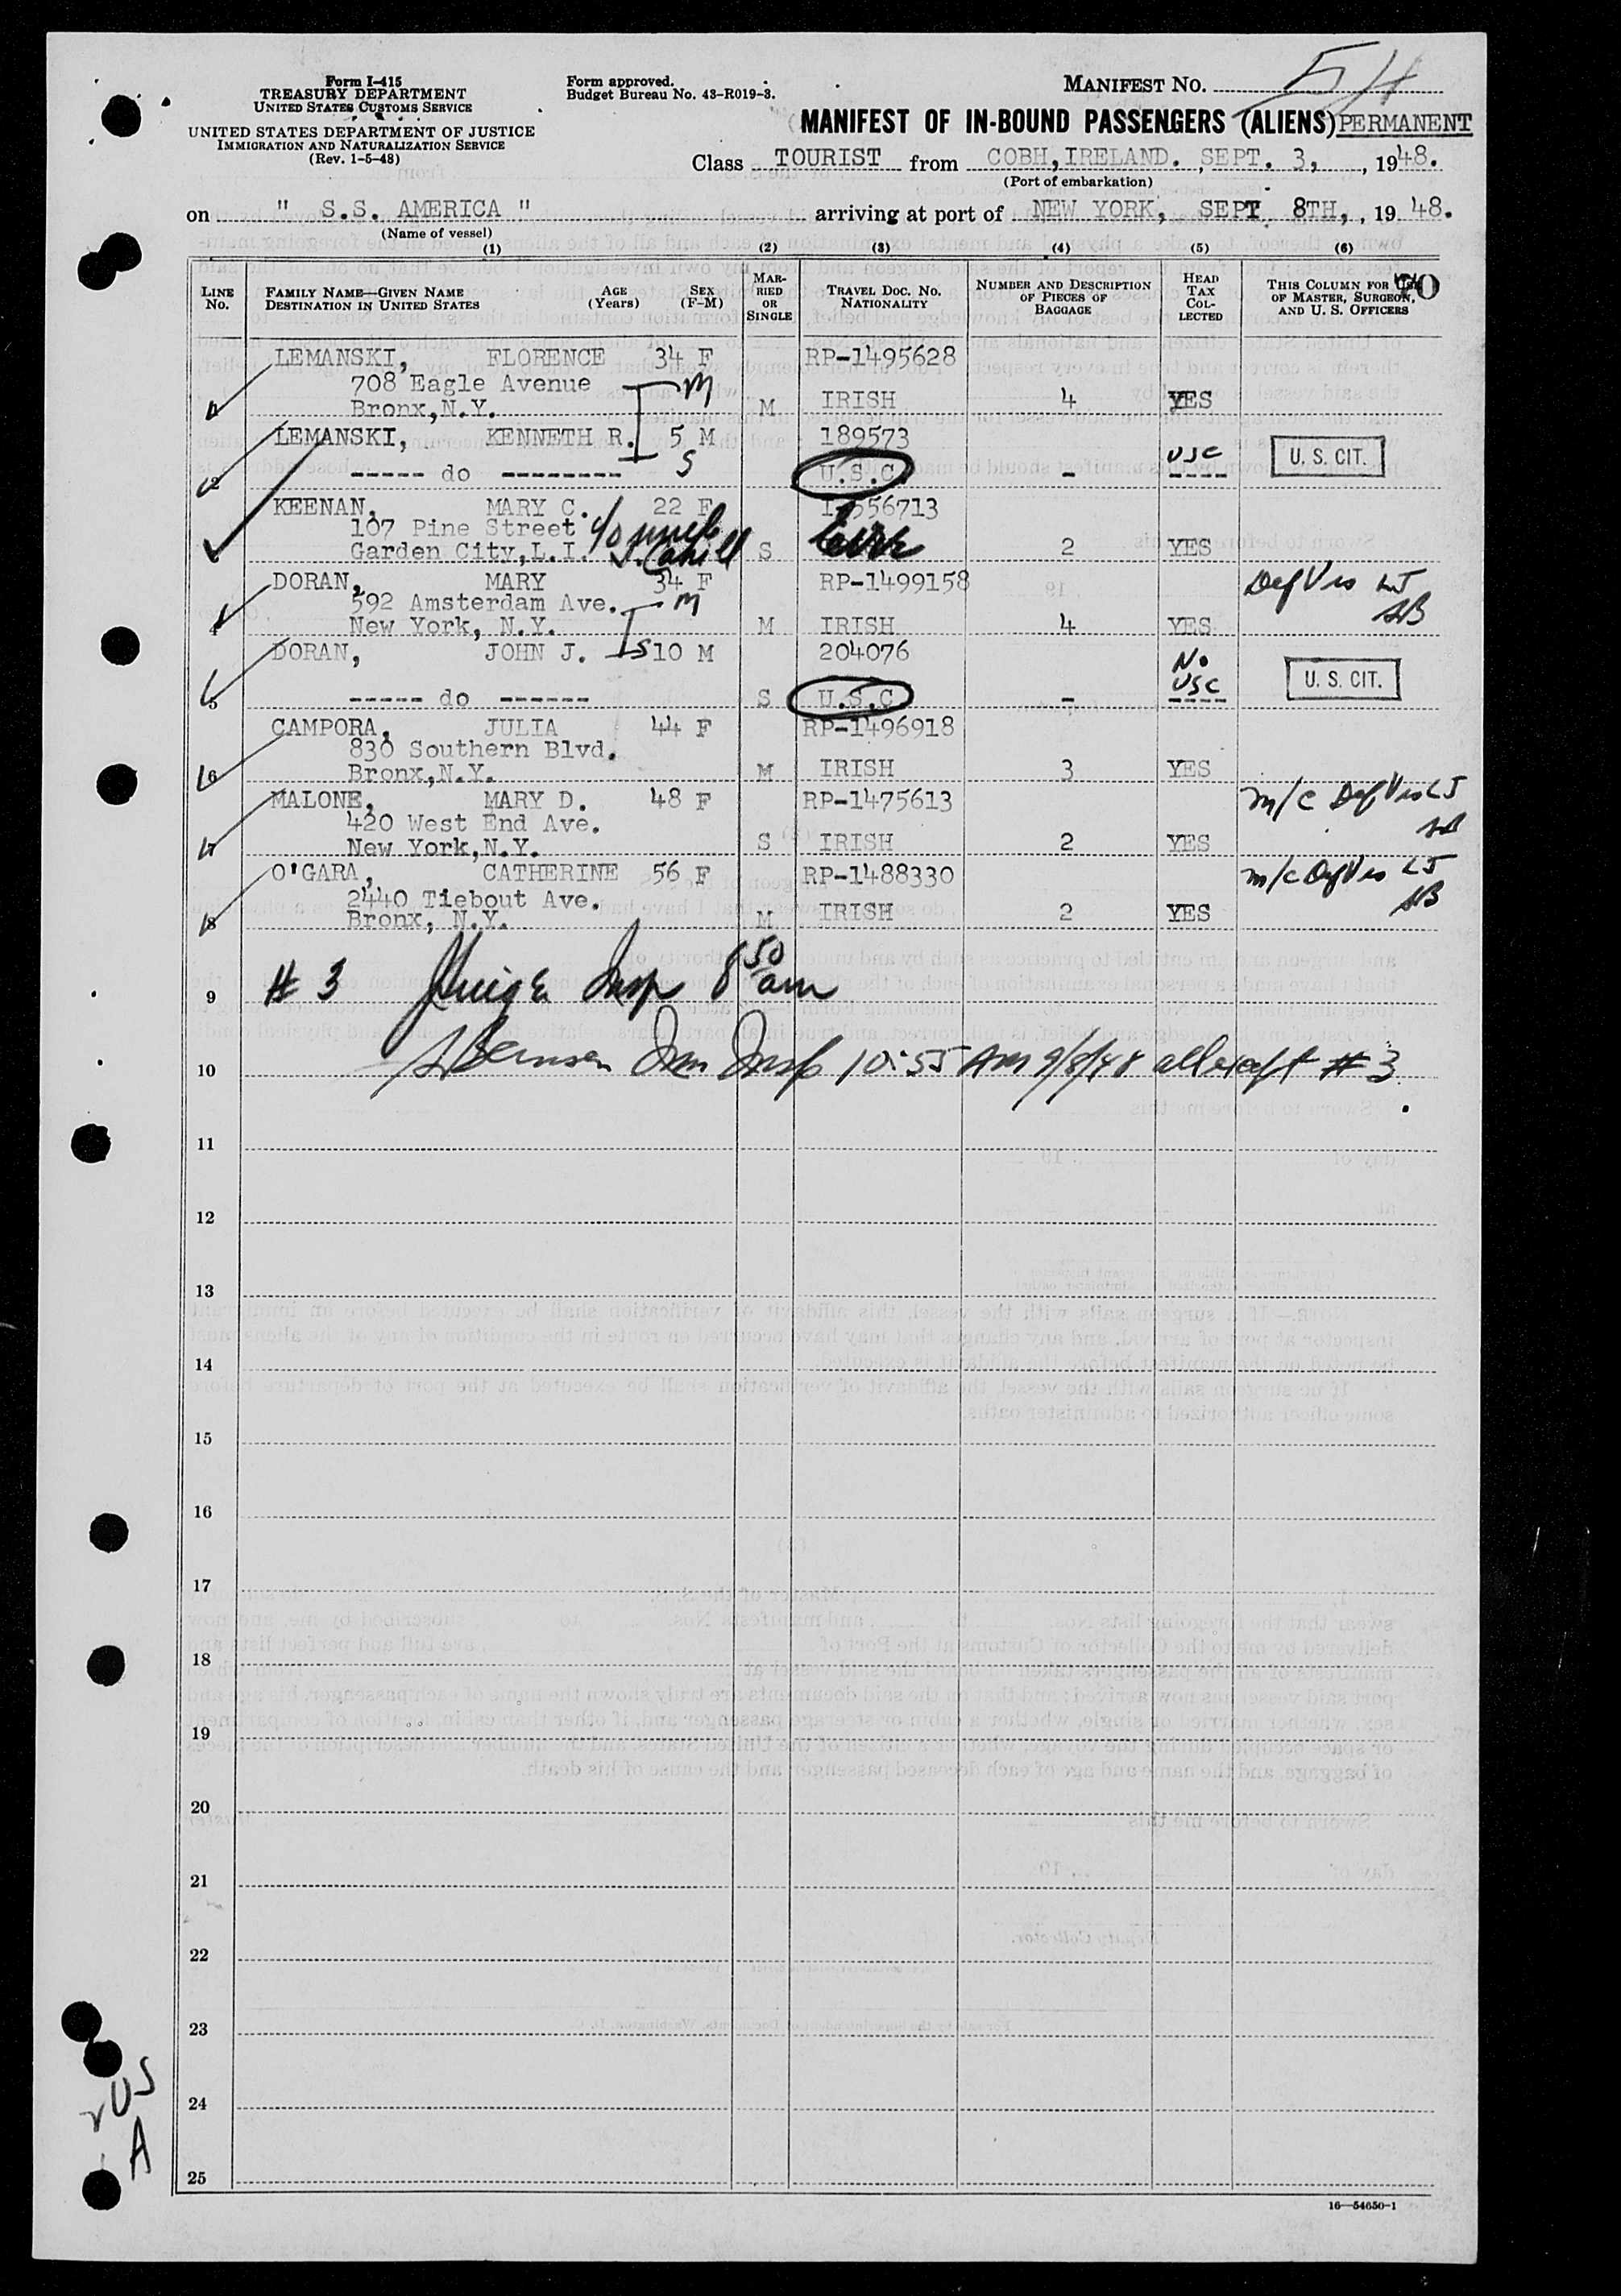 Form I-415
TREASURY DEPARTMENT
UNITED STATES CUSTOMS SERVICE
UNITED STATES DEPARTMENT OF JUSTICE
IMMIGRATION AND NATURALIZATION SERVICE
(Rev. 1-5-48)
Form approved.
Budget Bureau No. 43-R019-3.
MANIFEST NO. 54
MANIFEST OF IN-BOUND PASSENGERS (ALIENS) PERMANENT
Class TOURIST from COBH, IRELAND. , SEPT. 3, , 1948.
(Port of embarkation)
on " S.S. AMERICA " arriving at port of NEW YORK, SEPT 8TH, , 19 48.
(Name of vessel)
(1) (2) (3) (4) (5) (6)
LINE No. FAMILY NAME—GIVEN NAME DESTINATION IN UNITED STATES AGE (Years) SEX (F-M) MARRIED OR SINGLE TRAVEL DOC. NO. NATIONALITY NUMBER AND DESCRIPTION OF PIECES OF BAGGAGE HEAD TAX COLLECTED THIS COLUMN FOR USE OF MASTER, SURGEON, AND U. S. OFFICERS
70
LEMANSKI, FLORENCE 34 F RP-1495628
708 Eagle Avenue M
1 Bronx, N.Y. M IRISH 4 YES
LEMANSKI, KENNETH R. 5 M 189573
2 ----- do -------- S U.S.C. - USC ---- U. S. CIT.
KEENAN, MARY C. 22 F I-556713
107 Pine Street c/o uncle
Garden City, L.I. J. Cahill S Eire 2 YES
DORAN, MARY 34 F RP-1499158 Def Vis LJ
592 Amsterdam Ave. M SB
4 New York, N.Y. M IRISH 4 YES
DORAN, JOHN J. S 10 M 204076 No
5 ----- do ------ S U.S.C - USC ---- U. S. CIT.
CAMPORA, JULIA 44 F RP-1496918
830 Southern Blvd.
6 Bronx, N.Y. M IRISH 3 YES
MALONE, MARY D. 48 F RP-1475613 m/c Def Vis LJ
420 West End Ave. SB
7 New York, N.Y. S IRISH 2 YES
O'GARA, CATHERINE 56 F RP-1488330 m/c Def Vis LJ
2440 Tiebout Ave. SB
8 Bronx, N.Y. M IRISH 2 YES
9 # 3 Insp 8 50 am
10 Imm Insp 10:55 AM 9/8/48 all except # 3.
11
12
13
14
15
16
17
18
19
20
21
22
23
24
25
2 US
A
16—54650-1